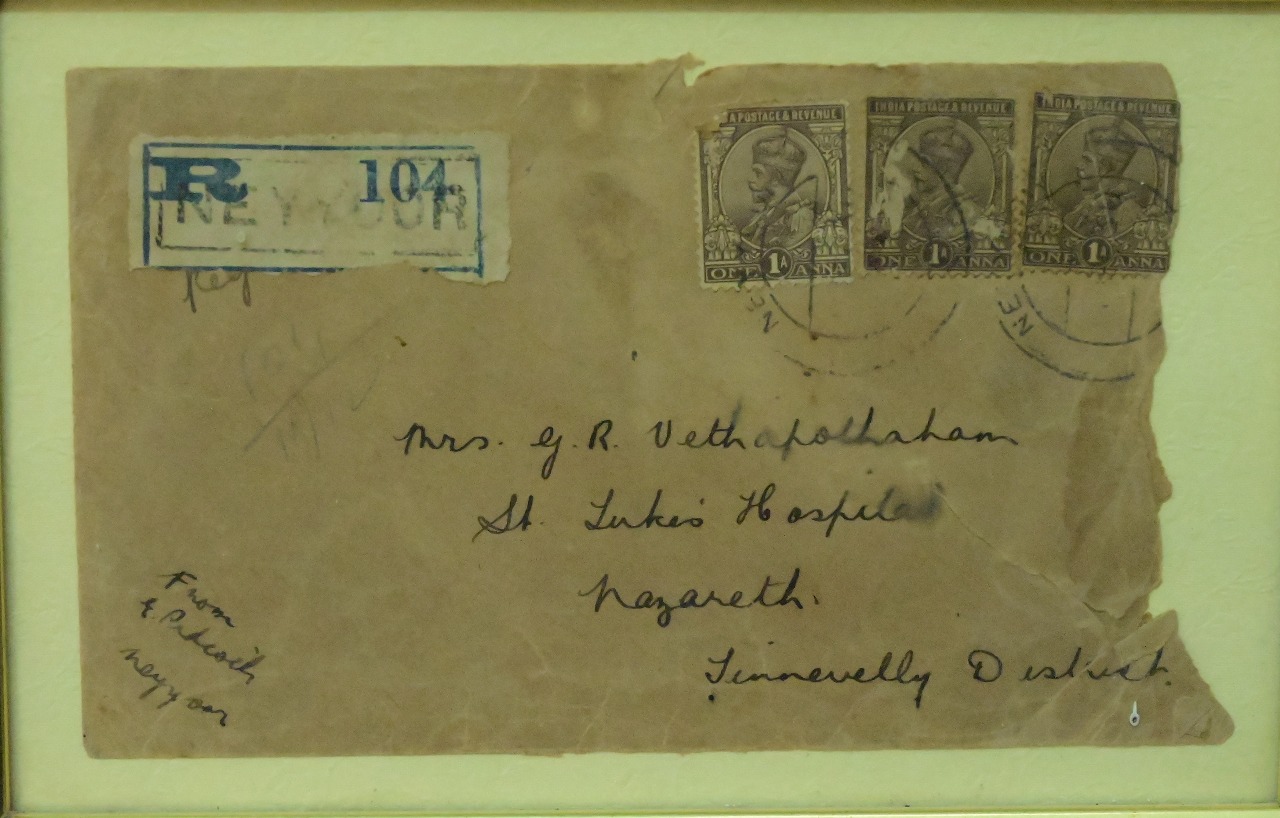 R 104
NEYYOOR
Reg
A POSTAGE & REVENUE
ONE 1A ANNA
INDIA POSTAGE & REVENUE
ONE 1A ANNA
INDIA POSTAGE & REVENUE
ONE 1A ANNA
NEY
NE
Mrs. G. R. Vethapothaham
St. Luke's Hospital
Nazareth.
Tinnevelly District.
From
Neyyoor